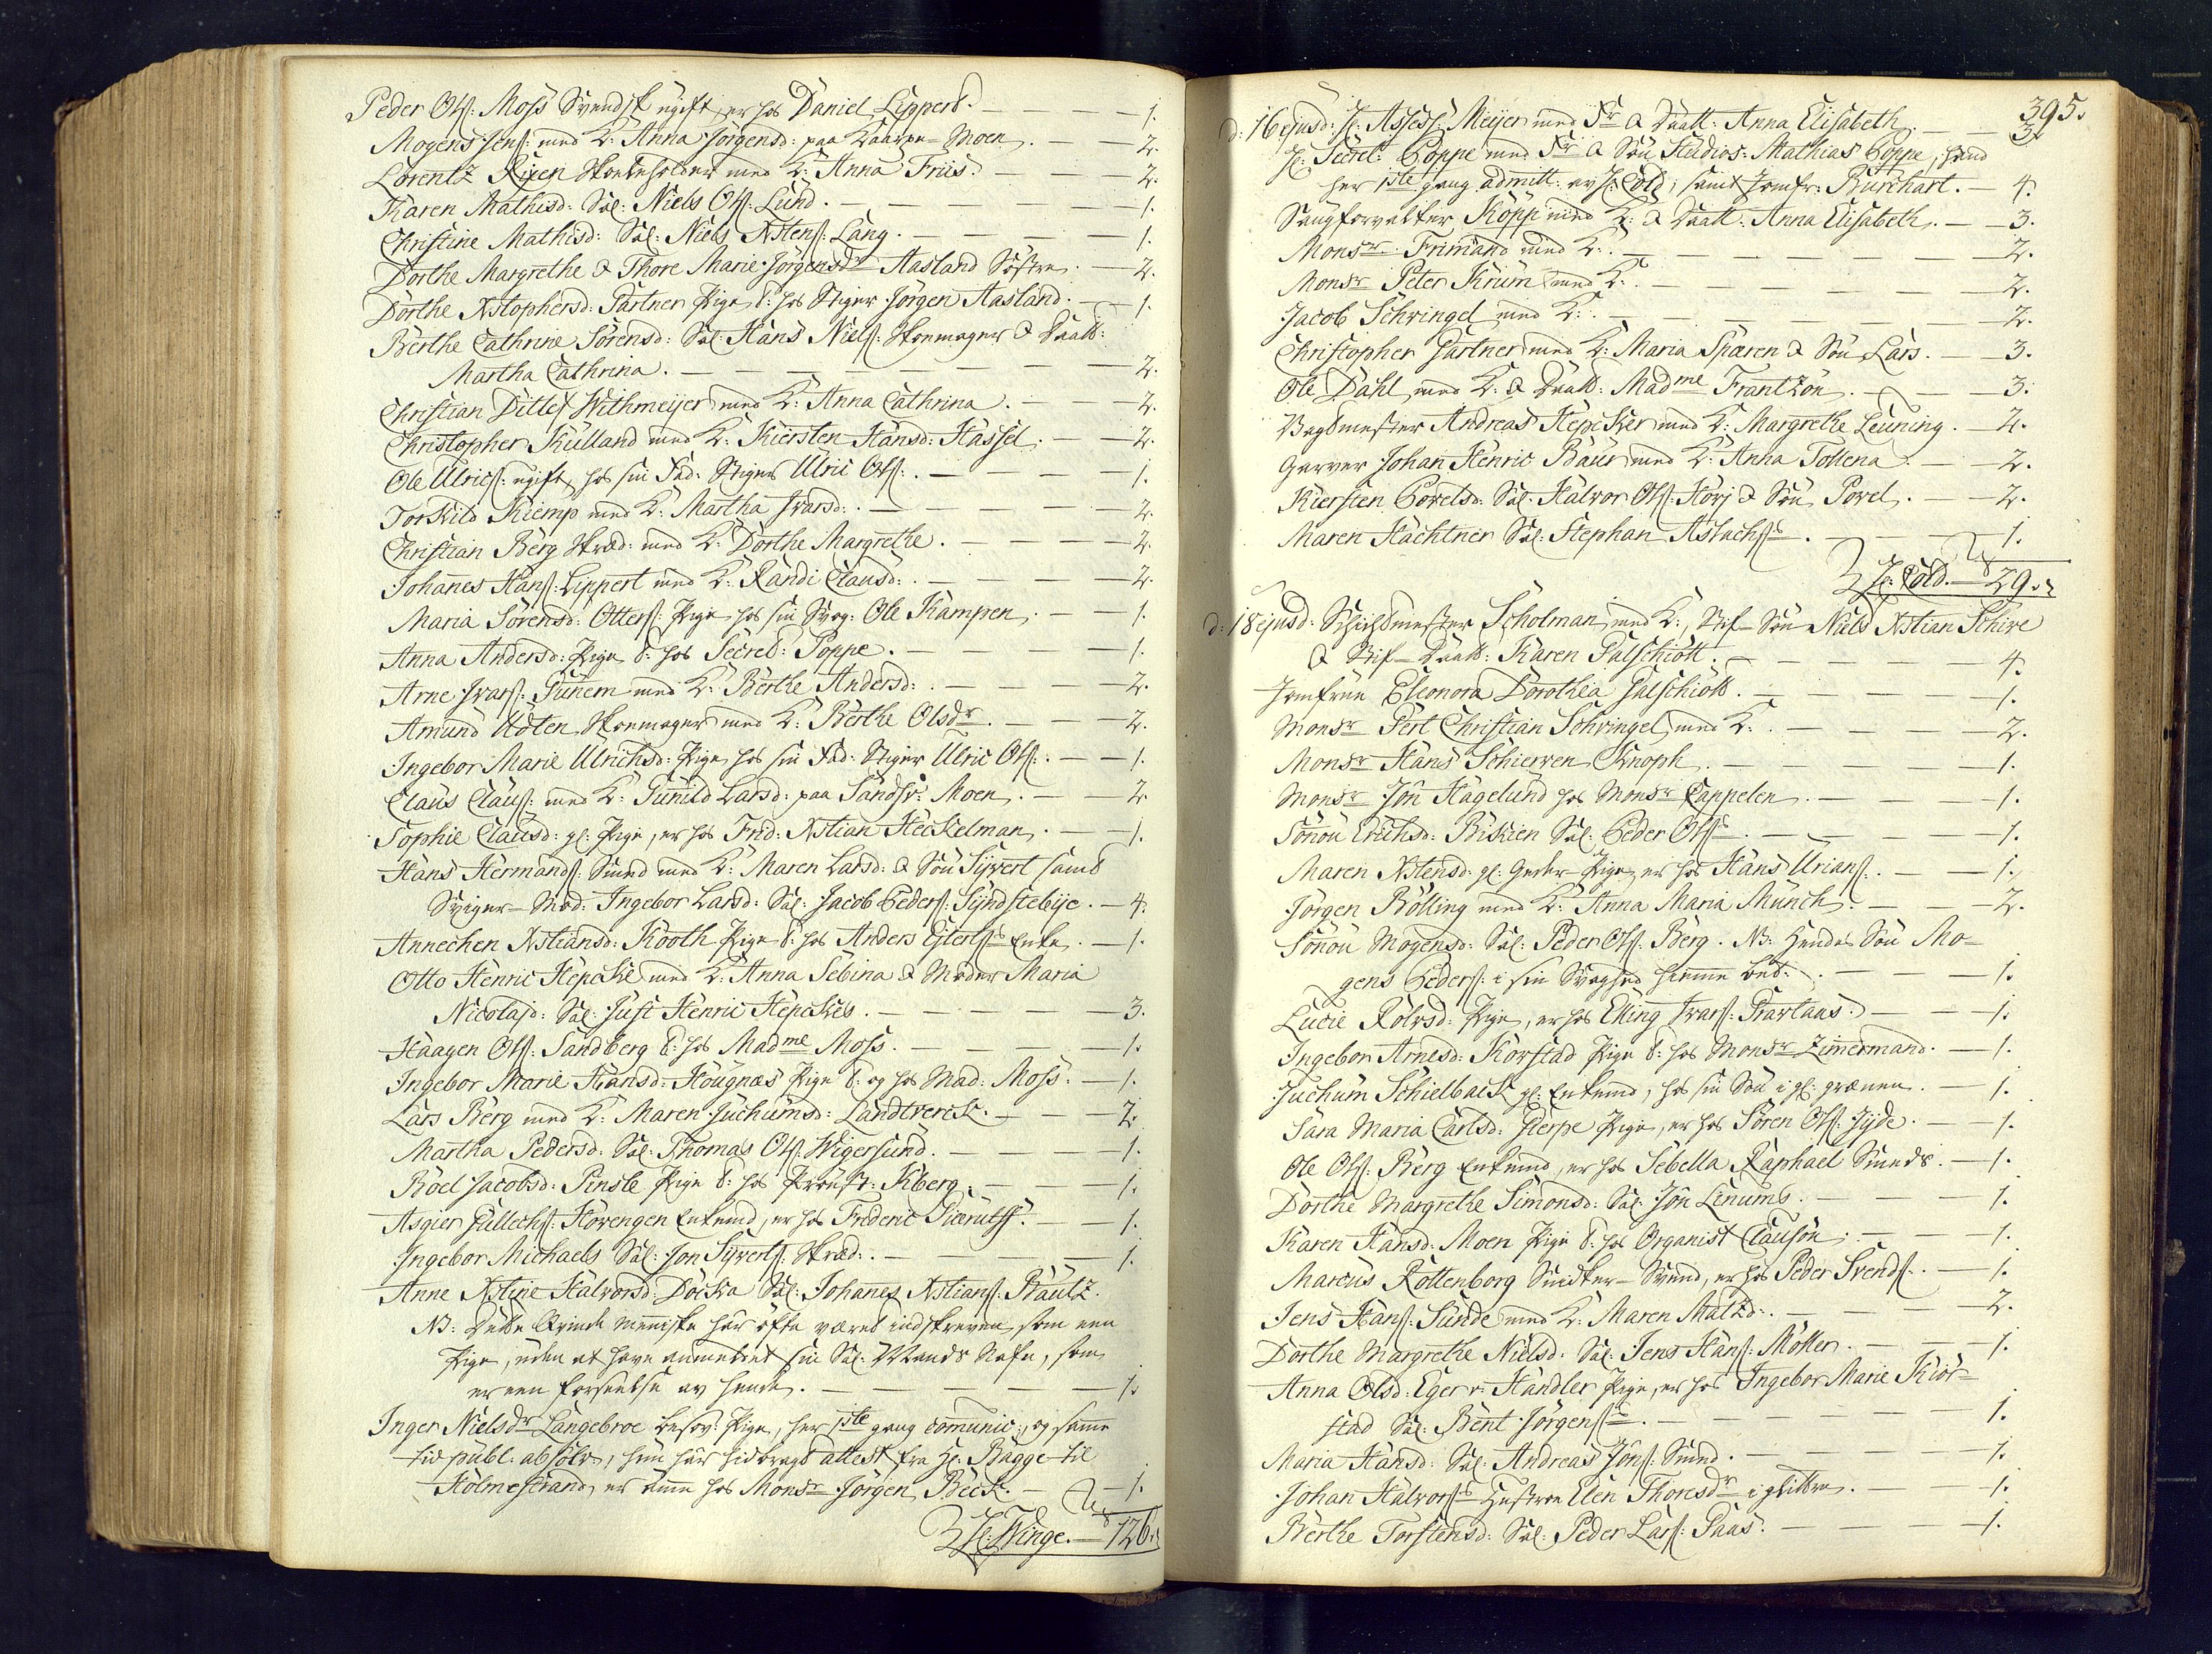 Peder Ols: Moss Svendsk ugift, er hos Daniel Lippert. — 1.
Mogens Jens: med K: Anna Jørgensd: paa Kaarpe-Moen. — 2.
Lorentz Rijen med K: Anna Friis. — 2.
Karen Mathisd: Sal: Niels Ols: Lund. — 1.
Christine Mathisd: Sal: Niels Xstens: Lang. — 1.
Dorthe Margrethe & Thore Marie Jørgensdr Aasland Søstre. — 2.
Dorthe Xstophersd: Gartner Pige t: hos Stiger Jørgen Aasland. — 1.
Berthe Cathrine Sørensd: Sal: Hans Niels: Skomager & Daatt:
Martha Cathrina. — 2.
Christian Ditlef Withmeijer med K: Anna Cathrina. — 2.
Christopher Kulland med K: Kiersten Hansd: Hassel. — 2.
Ole Ulrics: ugift, hos sin Fad: Stiger Ulric Ols:. — 1.
Torkild Kiemp med K: Martha Ivarsd:. — 2.
Christian Berg Skræd: med K: Dorthe Margrethe. — 2.
Johanes Hans: Lippert med K: Randi Clausd:. — 2.
Maria Sørensd: Otters: Pige hos sin Svog: Ole Kampen. — 1.
Anna Andersd: Pige t: hos Secret: Poppe. — 1.
Arne Ivars: Gunem med K: Berthe Andersd:. — 2.
Amund Udten Skomager med K: Berthe Olsdr. — 2.
Ingebor Marie Ulrichsd: Pige hos sin Fad: Stiger Ulric Ols:. — 1.
Claus Claus: med K: Gunild Larsd: paa Sandsv: Moen. — 2.
Sophie Clausd: gl: Pige, er hos Frid: Xstian Heckelman. — 1.
Hans Hermands: Smed med K: Maren Larsd: & Søn Sijvert samt
Sviger-Mod: Ingebor Larsd: Sal: Jacob Peders: Syndstebije. — 4.
Annechen Xstiansd: Kooth Pige t: hos Anders Ejlertss Enke. — 1.
Otto Henric Hepcke med K: Anna Sebina & Moder Maria
Nicolajd: Sal: Just Henric Hepckes. — 3.
Haagen Ols: Sandberg t: hos Madme Moss. — 1.
Ingebor Marie Hansd: Hougnæs Pige t: og hos Mad: Moss. — 1.
Lars Berg med K: Maren Juchumsd: Landtverck. — 2.
Martha Pedersd: Sal: Thomas Ols: Wigersund. — 1.
Böel Jacobsd: Pinsle Pige t: hos Kiberg. — 1.
Asgier Gullechs: Hovengen Enkemd, er hos Frideric. — 1.
Ingebor Michaels Sal: Jon Sijverts: Skræd:. — 1.
Anne Xstine Halvorsd: Docka Sal: Johanes Xstians: Bautz.
NB: Dette Qvinde Menniske har ofte været indskreven som een
Pige, uden at have anmeldet sin Sal: Mands Nafn, som
er een forseelse av hende. — 1.
Inger Nielsdr Langebroe besov: Pige, her 1ste gang comunic:, og samme
tid publ: absolv:, hun har hidbragt attest fra Hr: Bagge til
Holmestrand, er ame hos Monsr Jørgen Beck. — 1.
Hr: Winge. — 126.

395.
d: 16 ejusd: Hr: Assess: Meijer med Fr & Daatt: Anna Elisabeth. — 3.
Hr: Secret: Poppe med Fr & Søn Studios: Mathias Poppe, hand
her 1ste gang admitt: av Hr: Cold; samt Jomfr: Burchart. — 4.
Saugforvalter Köpp med K: & Daatt: Anna Elisabeth. — 3.
Monsr Frimand med K:. — 2.
Monsr Peter Krum med K:. — 2.
Jacob Schvingel med K:. — 2.
Christopher Gartner med K: Maria Sparen & Søn Lars. — 3.
Ole Dahl med K: & Daatt: Madme Frantzøn. — 3.
Vagtmester Andreas Hepcker med K: Margrethe Leuning. — 2.
Garver Johan Henric Baur med K: Anna Tollena. — 2.
Kiersten Povelsd: Sal: Halvor Ols: Horj & Søn Povel. — 2.
Maren Hachtner Sal: Stephan Aslachss. — 1.
Hr: Cold. — 29.
d: 18 ejusd: Schichtmester Scholman med K:, Stif-Søn Niels Xstian Schive
& Stif-Daatt: Karen Galschiøtt. — 4.
Jomfrue Eleonora Dorothea Galschiøtt. — 1.
Monsr Gert Christian Schvingel med K:. — 2.
Monsr Hans Schierven Knoph. — 1.
Monsr Jøn Hagelund hos Monsr Cappelen. — 1.
Sønou Erichsd: Biskien Sal: Peder Olss. — 1.
Maren Xstensd: gl: Pige, er hos Hans Urians:. — 1.
Jørgen Bölling med K: Anna Maria Munch. — 2.
Sønou Mogensd: Sal: Peder Ols: Berg. NB: Hendes Søn Mo-
gens Peders: i sin Svaghed hiemme bet:. — 1.
Lucie Rolvsd: Pige, er hos Elling Ivars:. — 1.
Ingebor Arnesd: Korstad Pige t: hos Monsr Zimermand. — 1.
Juchum Schielback gl: Enkemd, hos sin Søn i gl: grænen. — 1.
Sara Maria Carlsd: Hierpe Pige, er hos Søren Ols: Jyde. — 1.
Ole Ols: Berg Enkemd, er hos Sebella Raphael Smeds. — 1.
Dorthe Margrethe Simonsd: Sal: Jøn Linums. — 1.
Karen Hansd: Moen Pige t: hos Organist Clausøn. — 1.
Marcus Rottenborg Snidker-Svend, er hos Peder Svends:. — 1.
Jens Hans: Sunde med K: Maren Matzd:. — 2.
Dorthe Margrethe Nielsd: Sal: Jens Hans: Møller. — 1.
Anna Olsd: Eger v: Handler Pige, er hos Ingebor Marie Kiør-
stad Sal: Bent Jørgenss. — 1.
Maria Hansd: Sal: Andreas Jøns: Smed. — 1.
Johan Halvorss Hustroe Elen Thoresdr i glitteren. — 1.
Berthe Torstensd: Sal: Peder Lars: Paas. — 1.